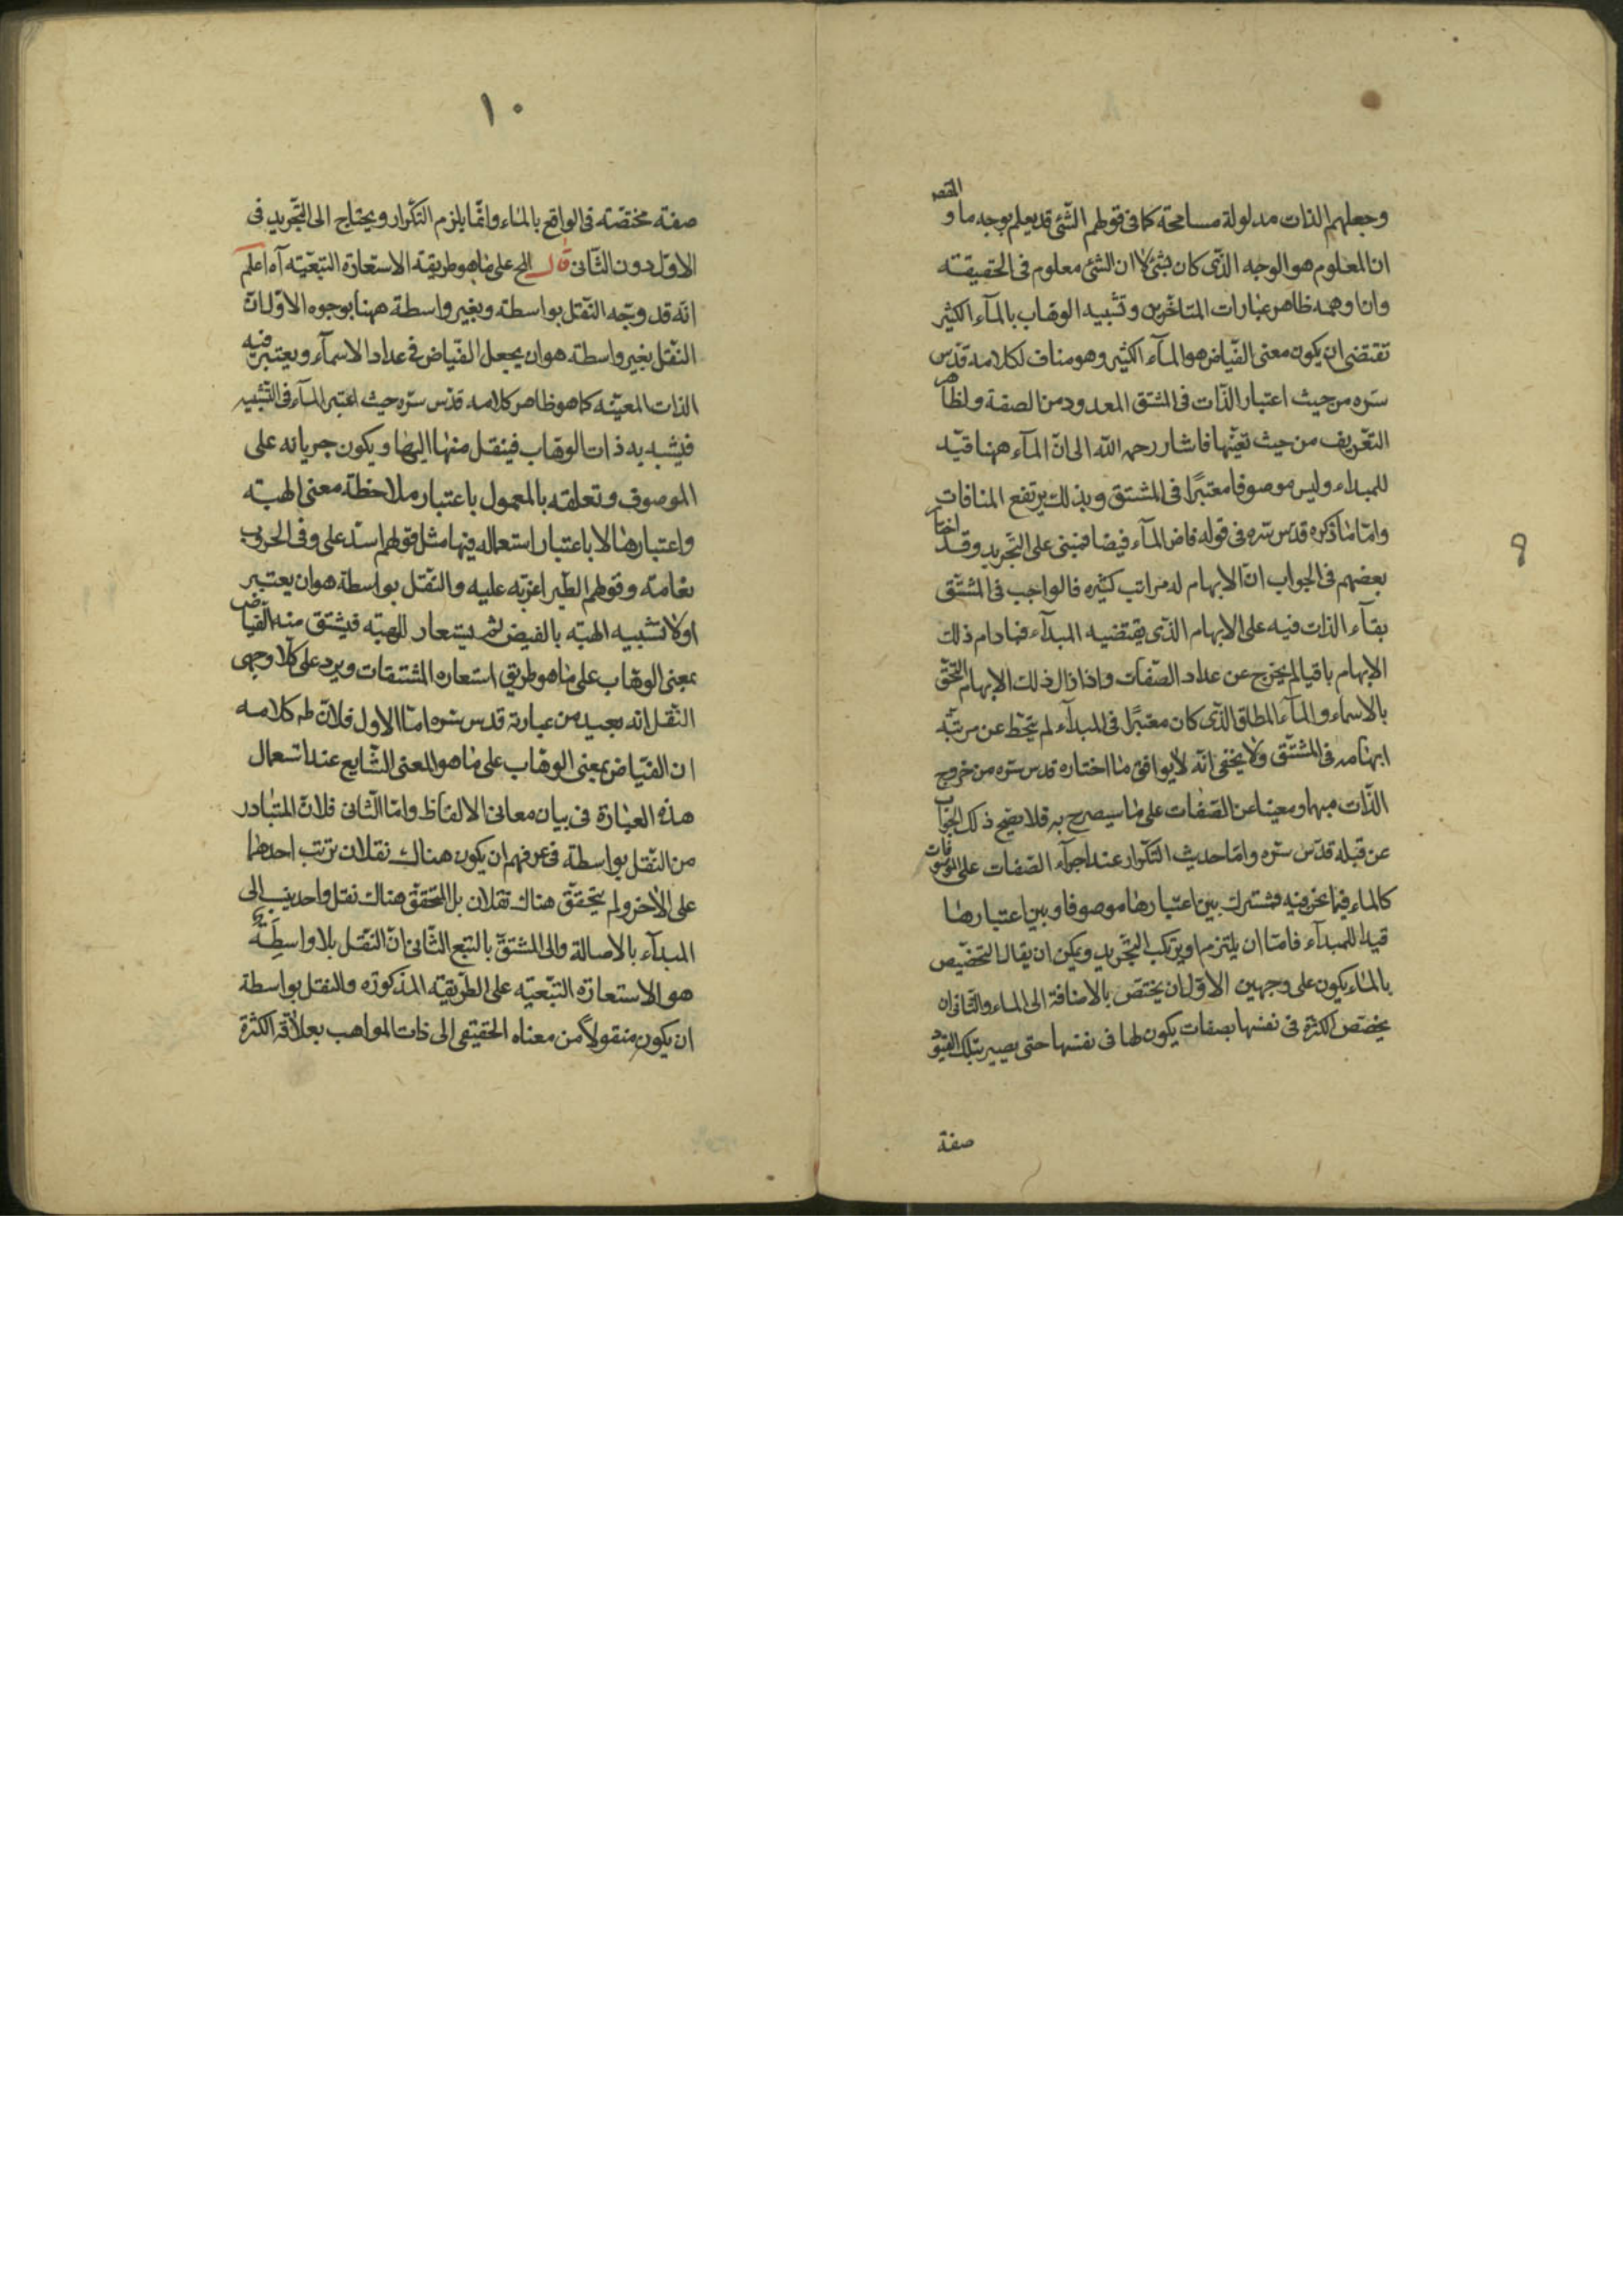 ٩
وجعلهم الذات مدلولة مسامحة كما فى قولهم الشئ قد يعلم بوجه ما و المقصد
ان المعلوم هو الوجه الذى كان بشئ لا ان الشئ معلوم فى الحقيقة
وان اوهمه ظاهر عبارات المتاخرين وتشبيه الوهاب بالمآء الكثير
تقتضى ان يكون معنى الفياض هو المآء الكثير وهو مناف لكلامه قدس
سره من حيث اعتبار الذات فى المشتق المعدود من الصفة ولظاهر
التعريف من حيث تعينها فاشار رحمه الله الى ان المآء ههنا قيد
للمبداء وليس موصوفا معتبرا فى المشتق وبذلك يرتفع المنافات
واما ما ذكره قدس سره فى قوله فاض المآء فيضا فمبنى على التجريد وقد اختار
بعضهم فى الجواب ان الابهام له مراتب كثيره فالواجب فى المشتق
بقآء الذات فيه على الابهام الذى يقتضيه المبدآء فما دام ذلك
الابهام باقيا لم يخرج عن عداد الصفات واذا زال ذلك الابهام التحق
بالاسماء والمآء المطلق الذى كان معتبرا فى المبدآء لم يتحط عن مرتبة
ابهامه فى المشتق ولا يخفى انه لا يوافق ما اختاره قدس سره من خروج
الذات مبهما ومعينا عن الصفات على ما سيصرح به فلا يصح ذلك الجواب
عن قبله قدس سره واما حديث التكرار عند اجرآء الصفات على الموصوفات
كالماء فيما نحن فيه فمشترك بين اعتبارها موصوفا وبين اعتبارها
قيدا للمبدآء فاما ان يلتزم او يرتكب التجريد ويمكن ان يقال التخصيص
بالماء يكون على وجهين الاول ان يختص بالاضافة الى الماء والثانى ان
يخصص الكثرة فى نفسها بصفات يكون لها فى نفسها حتى يصير بتلك القيود
صفة
١٠
صفة مختصة فى الواقع بالماء وانما يلزم التكرار ويحتاج الى التجريد فى
الاول دون الثانى قال الخ على ما هو طريقة الاستعارة التبعية آه اعلم
انه قد وجه النقل بواسطة وبغير واسطة ههنا بوجوه الاول ان
النقل بغير واسطة هو ان يجعل الفياض فى عداد الاسمآء ويعتبر فيه
الذات المعينه كما هو ظاهر كلامه قدس سره حيث اعتبر المآء فى التشبيه
فيشبه به ذات الوهاب فينقل منها اليها ويكون جريانه على
الموصوف وتعلقه بالمعمول باعتبار ملاحظة معنى الهبة
واعتبارها لا باعتبار استعماله فيها مثل قولهم اسد على وفى الحروب
نعامة وقولهم الطير اغربة عليه والنقل بواسطة هو ان يعتبر
اولا تشبيه الهبة بالفيض ثم يستعار للهبة فيشتق منه الفياض
بمعنى الوهاب على ما هو طريق استعاره المشتقات ويرد على كلا وجهى
النقل انه بعيد من عبارة قدس سره اما الاول فلان ظم كلامه
ان الفياض بمعنى الوهاب على ما هو المعنى الشايع عند استعمال
هذه العبارة فى بيان معانى الالفاظ واما الثانى فلان المتبادر
من النقل بواسطة فى عرفهم ان يكون هناك نقلان ترتب احدهما
على الاخر ولم يتحقق هناك نقلان بل المتحقق هناك نقل واحد ينسب الى
المبدآء بالاصالة والى المشتق بالتبع الثانى ان النقل بلا واسطة
هو الاستعارة التبعية على الطريقة المذكورة والنقل بواسطة
ان يكون منقولا من معناه الحقيقى الى ذات المواهب بعلاقة الكثرة